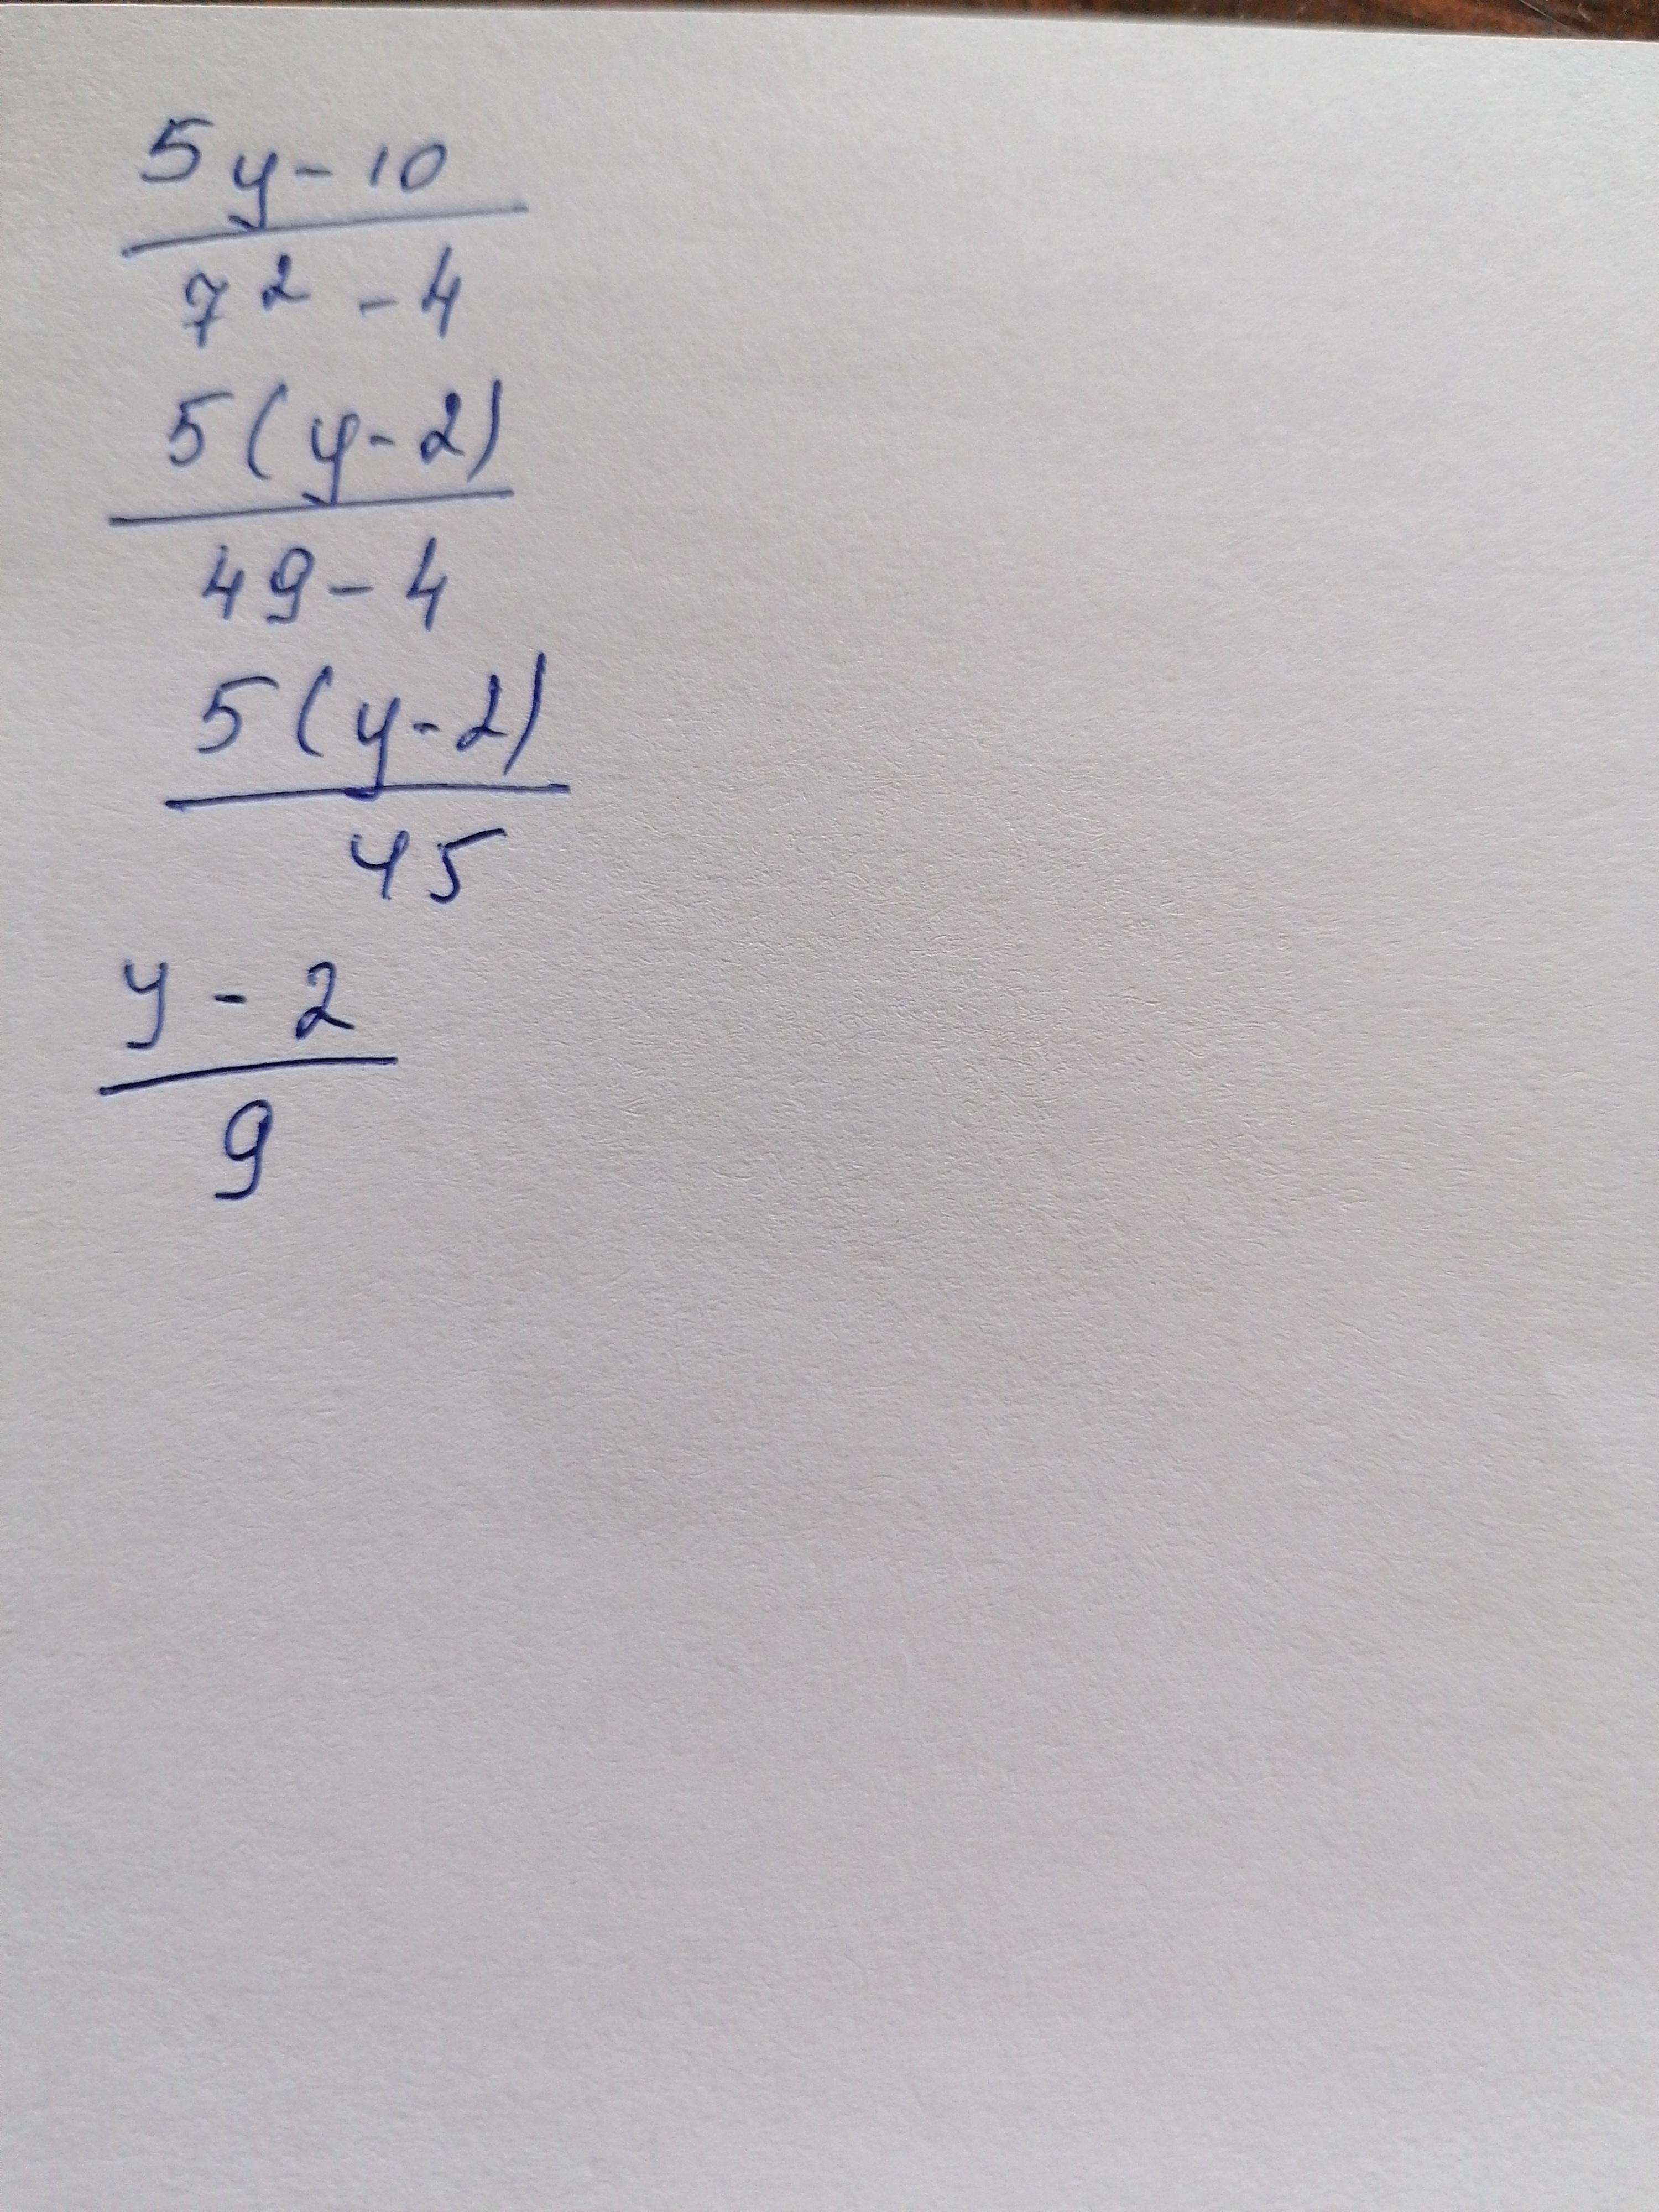 5y-10
7² - 4
5(y-2)
49-4
5(y-2)
45
y - 2
9